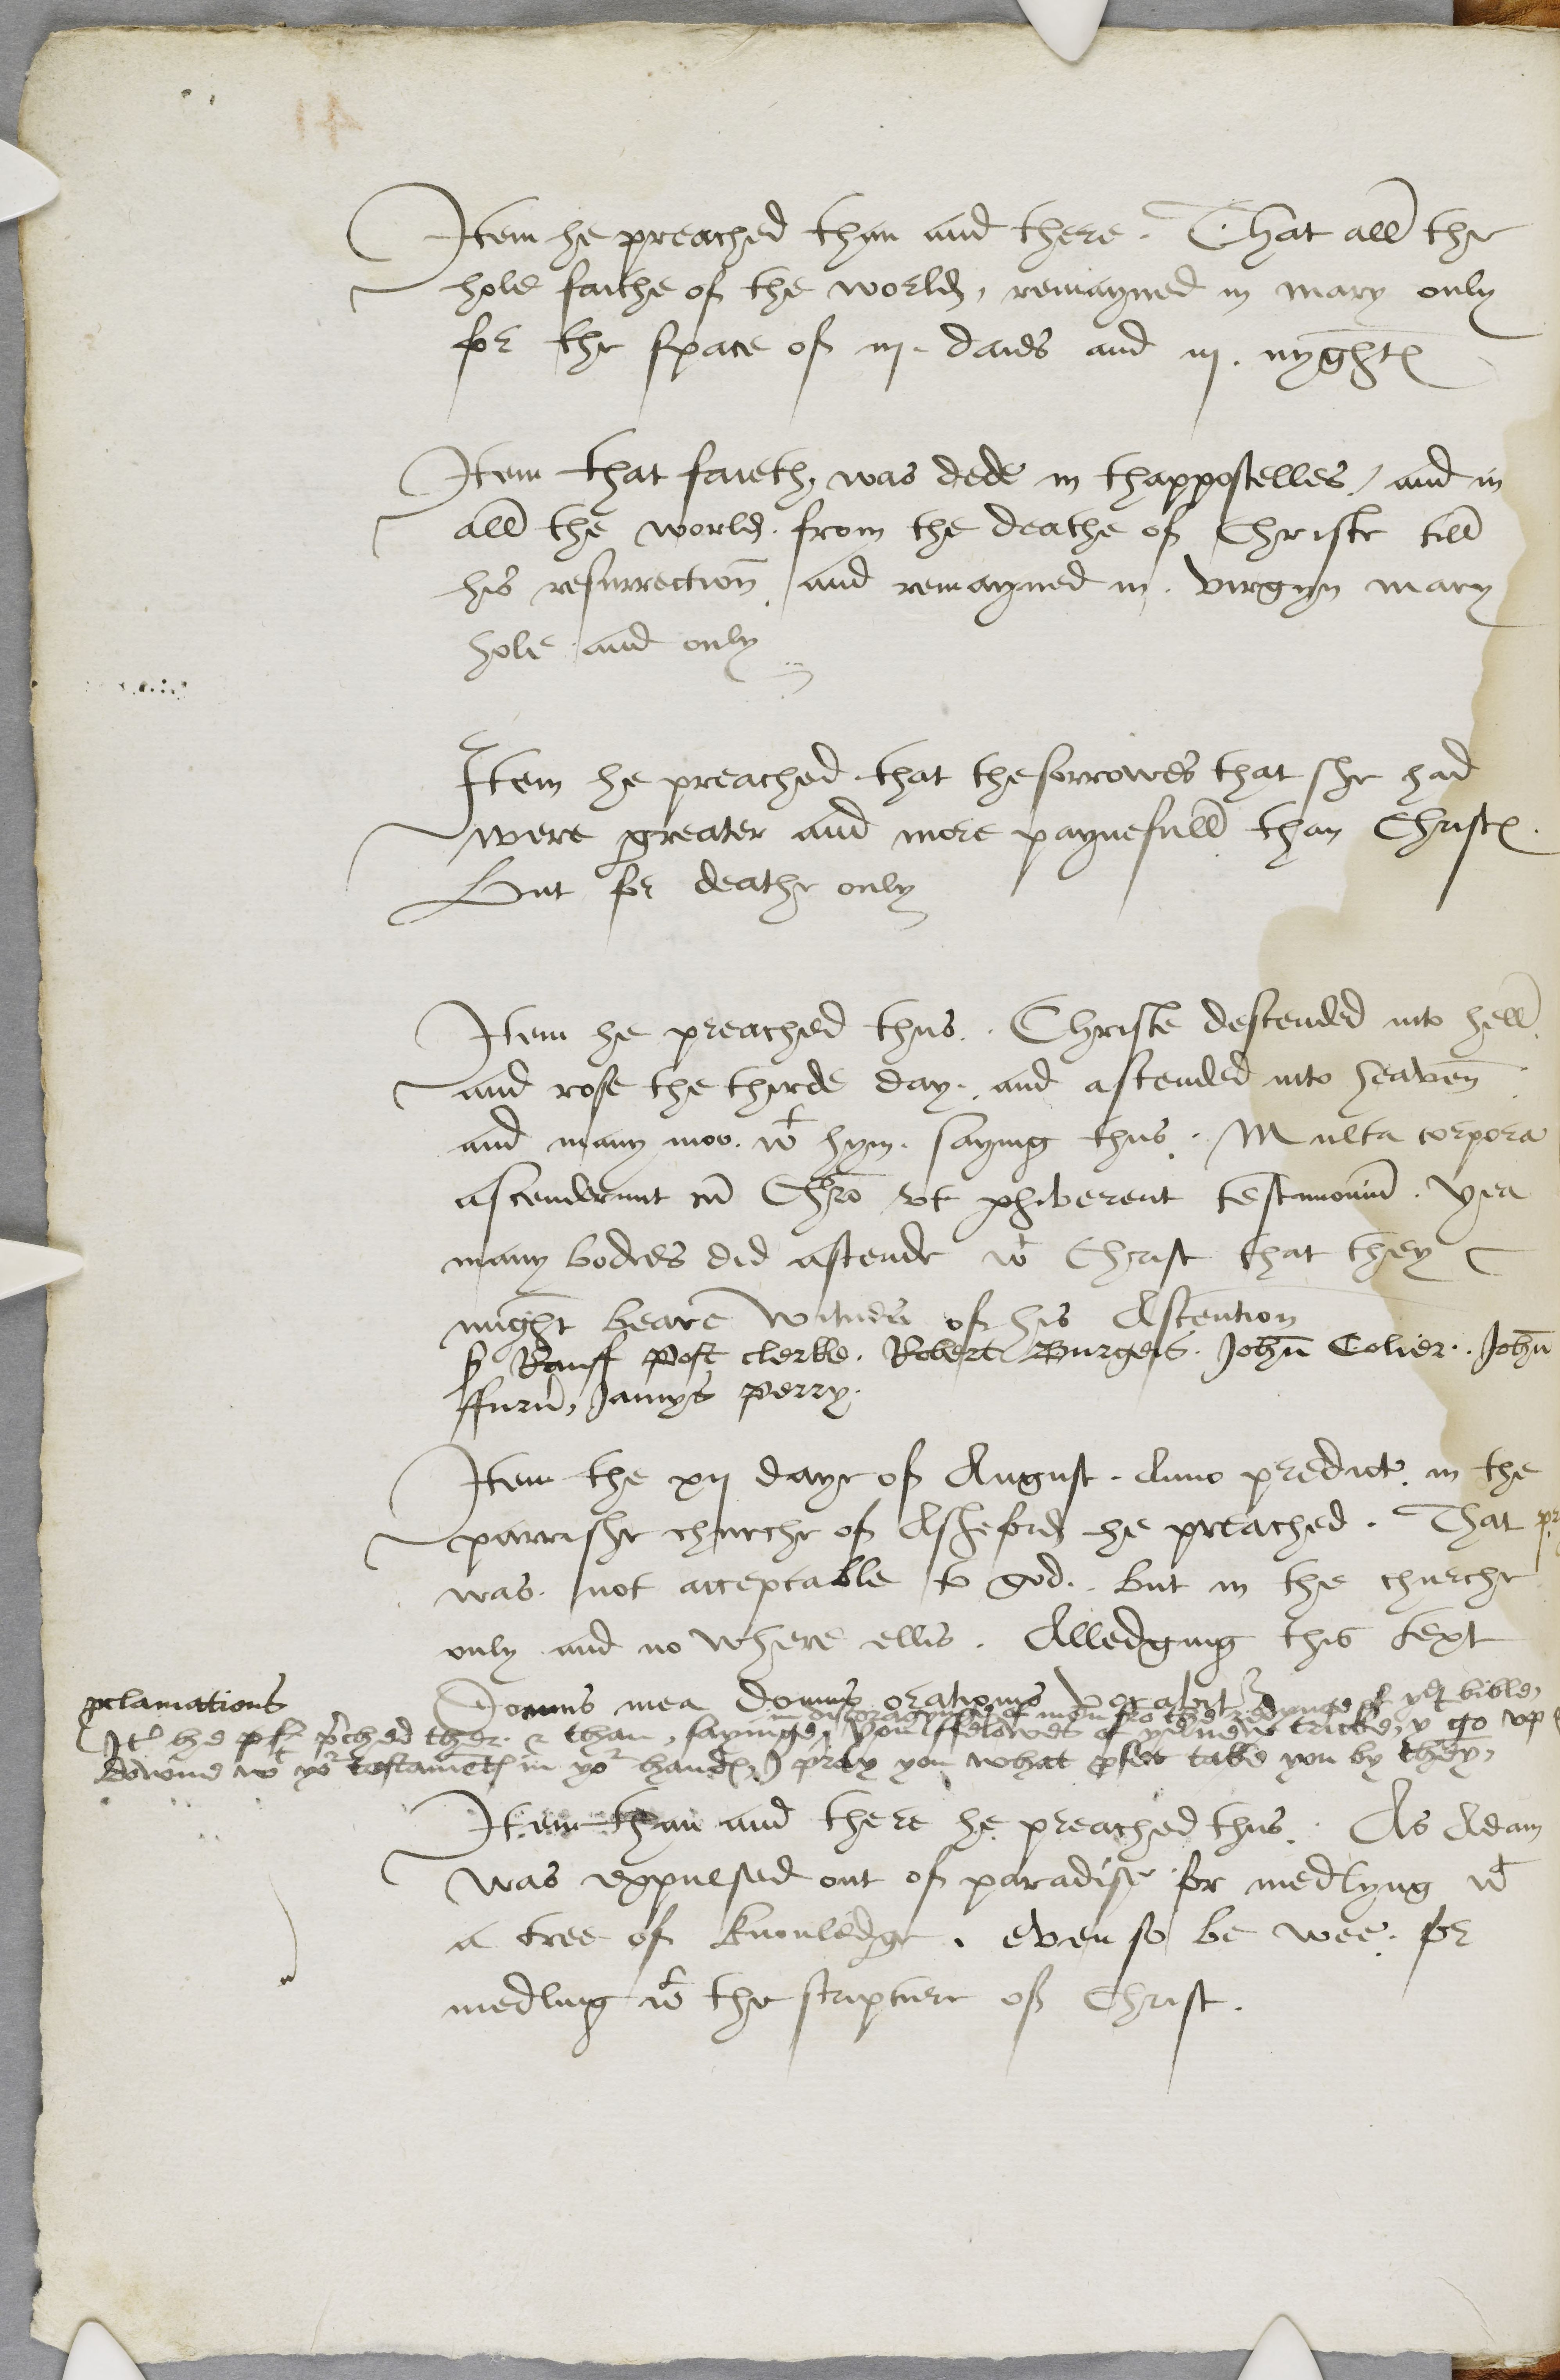 Item he preached than and there. That all the
hole faithe of the world, remayned in mary only
for the space of iij. daies and iij. nyghtes
Item that faieth, was dede in thappostelles / and in
all the world. from the deathe of Christe till
his resurrection and remayned in. virgyn mary
hole and only
Item he preached that the sorrowes that she had
were greater and more paynefull than Christes.
But for deathe only
Item he preached thus. Christe descended into hell
and rose the thirde day. and ascended into heaven
and many moo. wt hym. saying thus. Multa corpora
ascenderunt cu Chro vt phiberent testimoniu. yea
many bodies did ascende wt Christ that they
might beare witnes of his Ascention
Rauff Post clerke. Robert Burgeis. John Colier. John
ffurn, Jamys Perry.
Item the xij daye of August. Anno predict. in the
parrishe churche of Asheford he preached. That
was. not acceptable to god. but in the churche
only and no where ellis. Alledging this text
pclamations
Domus mea domus orationis vocabit
in discoragynge of men fro the redynge of ye bible,
It he pched ther & than, sayinge, you ffelowes of ye new tricke, y go vp
downe wt yor testaments in yor hands, I pray you what pfet take you by them,
Item than and there he preached thus. As Adam
was expulsed out of paradise for medlyng wt
a tree of knowledge. even so be wee. for
medling wt the scripture of Christ.